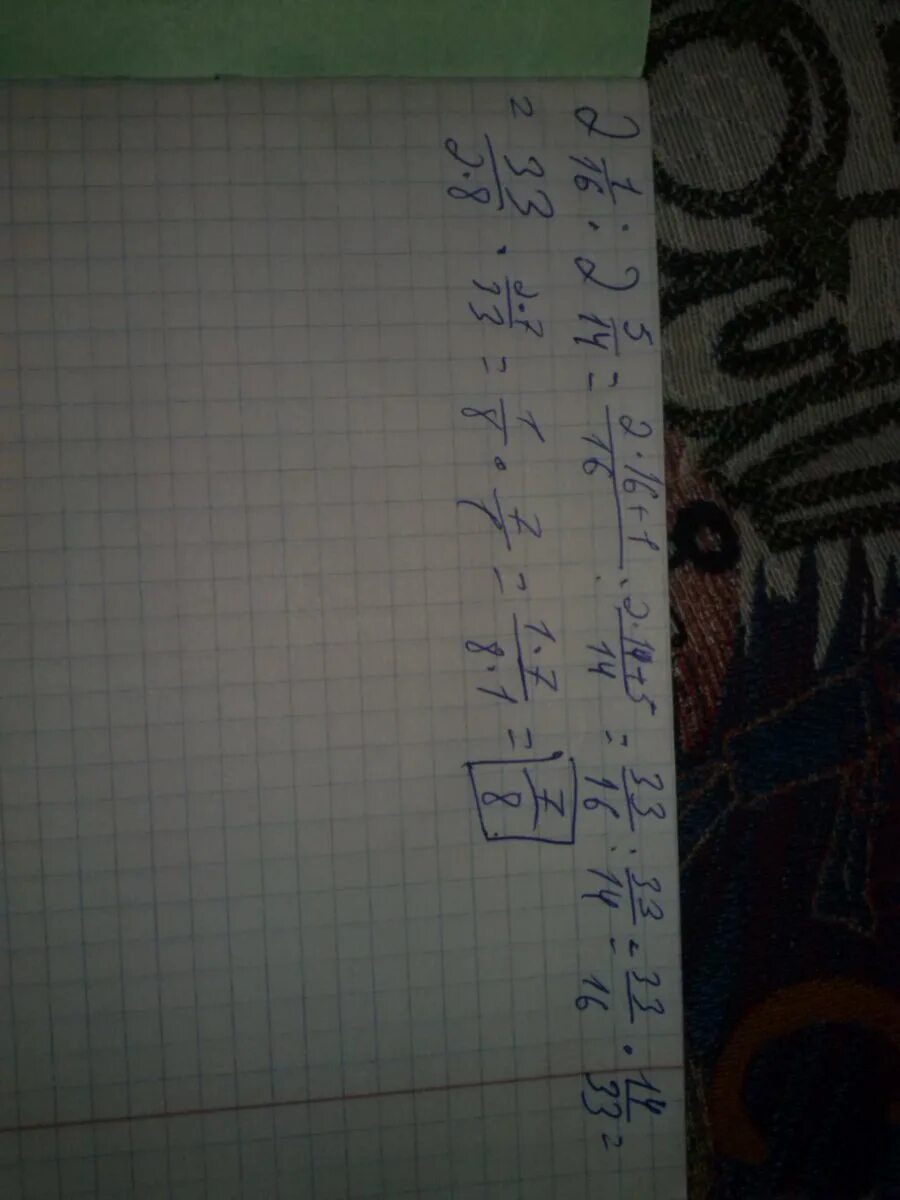 2 1/16 : 2 5/14 = (2·16+1)/16 : (2·14+5)/14 = 33/16 : 33/14 = 33/16 · 14/33 =
= 33/(2·8) · (2·7)/33 = 1/8 · 7/1 = (1·7)/(8·1) = 7/8